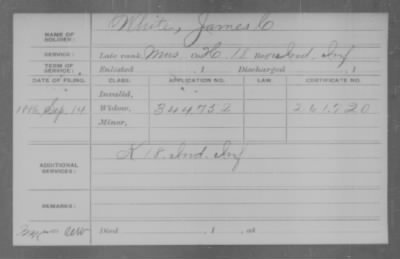 NAME OF SOLDIER: White, James C
SERVICE: Late rank, Mus. Co H. 18 Reg't Ind. Inf
TERM OF SERVICE: Enlisted , 1 Discharged , 1
DATE OF FILING. CLASS. APPLICATION NO. LAW. CERTIFICATE NO.
Invalid,
Sep. 14 Widow, 344752 261720
Minor,
ADDITIONAL SERVICES: K 18. Ind. Inf
REMARKS:
Died , 1 , at